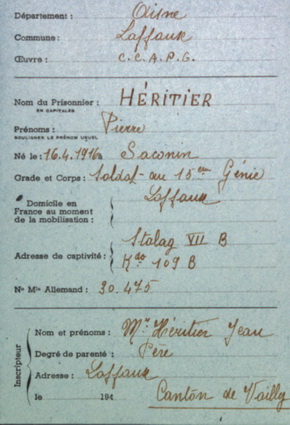 Département : Aisne
Commune : Laffaux
Œuvre : C.C.A.P.G.
Nom du Prisonnier : HÉRITIER
EN CAPITALES
Prénoms : Pierre
SOULIGNER LE PRÉNOM USUEL
Né le : 16.4.1916 à Saconin
Grade et Corps : Soldat au 15ème Génie
Domicile en France au moment de la mobilisation : Laffaux
Adresse de captivité : Stalag VII B
Kdo 109 B
No Mle Allemand : 30.475
Inscripteur
Nom et prénoms : Mr Héritier Jean
Degré de parenté : Père
Adresse : Laffaux
le 194
Canton de Vailly